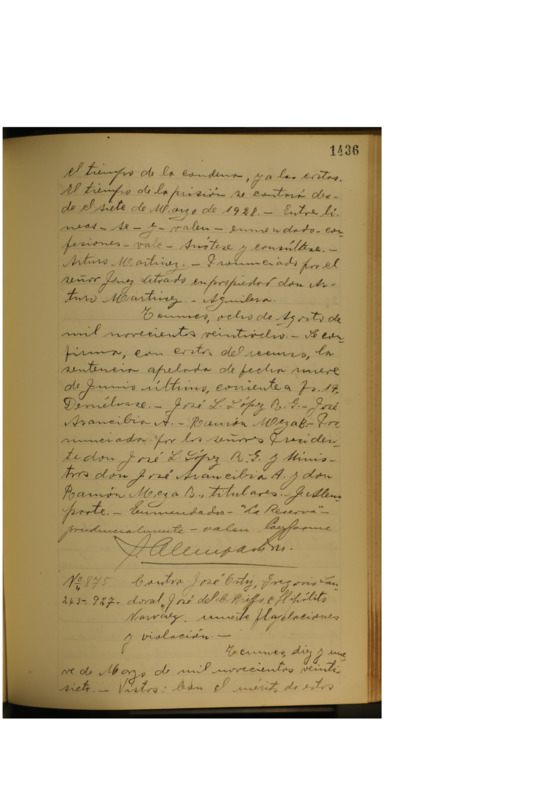 1436
el tiempo de la condena, y a las costas.
El tiempo de la prisión se contará des-
de el siete de Marzo de 1928.- Entre lí-
neas - se - e - valen - enmendado - con-
fesiones - vale - Anótese y consúltese.-
Arturo Martínez.- Pronunciado por el
señor Juez letrado en propiedad don Ar-
turo Martínez.- Aguilera.
Temuco, ocho de Agosto de
mil novecientos veintiocho.- Se con-
firma, con costas del recurso, la
sentencia apelada de fecha nueve
de Junio último, corriente a fs. 17.
Devuélvase.- José L. López R. G.- José
Arancibia A.- Ramón Meza B.- Pro
nunciada por los señores Presiden-
te don José L. López R. G. y Minis-
tros don José Arancibia A. y don
Ramón Meza B., titulares.- J. Alem-
parte.- Enmendados - "La Reserva" -
prudencialmente - valen Conforme
J. Alemparte.
Nº 875 Contra José Gregorio San-
243-927- doval, José del C. Riffo e Hipólito
Narváez. muerte flagelaciones
y violación.-
Temuco, diez y nue
ve de Marzo de mil novecientos veinti-
siete.- Vistos: Con el mérito de estos